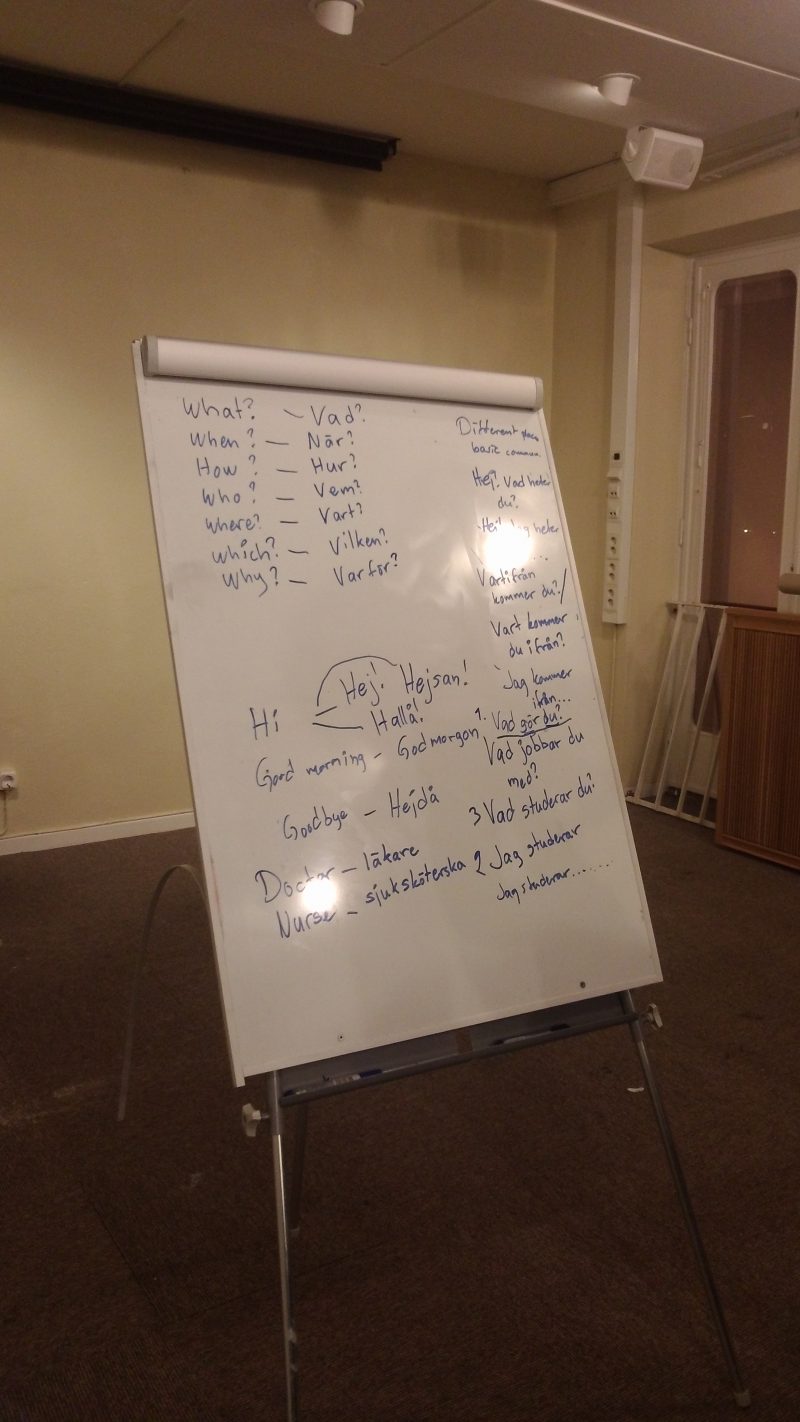 What? – Vad?
When? – När?
How? – Hur?
Who? – Vem?
where? – Vart?
which? – Vilken?
Why? – Varför?
Hi = Hej! Hejsan!
Hallå!
Good morning – Godmorgon
Goodbye – Hejdå
Doctor – läkare
Nurse – sjuksköterska
Different
basic commun.
Hej! Vad heter
du?
Hej! Jag heter
....
Vartifrån
kommer du?/
Vart kommer
du ifrån?
Jag kommer
ifrån...
1. Vad gör du?
Vad jobbar du
med?
3 Vad studerar du?
2 Jag studerar
Jag studerar.......